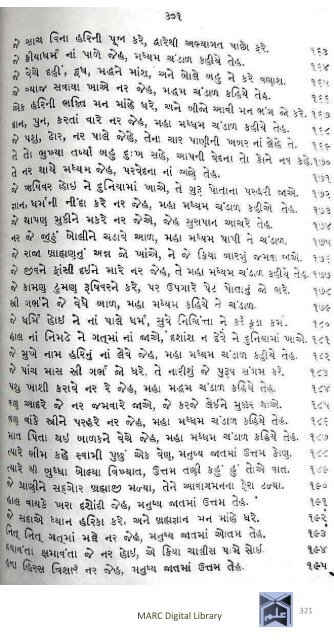 ૩૦૧
જે સાચ વિના હરિની પૂજા કરે, દ્વારેથી અભ્યાગત પાછો ફરે. ૧૬૩
જે ક્રીયાધર્મ નાં પાળે જેહ, મધ્યમ ચંડાળ કહીયે તેહ. ૧૬૪
જે વેચે દહીં, દૂધ, મદ્યને માંશ, અને બોલે બહુ ને કરે વણાશ. ૧૬૫
જે વ્યાજ સવાયા ખાએ નર જેહ, મદ્ધમ ચંડાળ કહિયે તેહ. ૧૬૬
એક હરિની ભક્તિ મન માંહે ધરે, અને બીજો આવી મન ભંગ જો કરે. ૧૬૭
દાન, પુન, કરતાં વારે નર જેહ, મહા મધ્યમ ચંડાળ કહીયે તેહ. ૧૬૮
જે પશુ, ઢોર, નર પાલે જેહે, તેના ચાર પાણીની ખબર નાં લેહે તે. ૧૬૯
તે તો ભુખ્યા તર્ષ્યા બહુ દુઃખ સહે, આપની વેદના તે કોને નવ કહે. ૧૭૦
તે નર થાયે મધ્યમ જેહ, પરવેદના નાં જાણે તેહ. ૧૭૧
જે ઋષિવર હોઇ ને દુનિયામાં ખાએ, તે ગુરૂ પોતાના પરહરી જાએ. ૧૭૨
જ્ઞાન, ધર્મની નીંદા કરે નર જેહ, મહા મધ્યમ ચંડાળ કહીએ તેહ. ૧૭૩
જે થાપણ મુકીને મકરે નર જેએ, જેહ સુરાપાન આચરે તેહ. ૧૭૪
નર જે જુઠું બોલીને ચડાવે આળ, મહા મધ્યમ પાપી ને ચંડાળ. ૧૭૫
જે રાજા બ્રાહ્મણનું અન્ન જો ખાએ, ને જે ક્રિયા બારમું જમવા જાએ. ૧૭૬
જે જીવને ફાંસી દઇને મારે નર જેહ, તે મહા મધ્યમ ચંડાળ કહીયે તેહ. ૧૭૭
જે કામણ ટુમણ રૂષિવરને કરે, પર ઉપગારે પેટ પોતાનું જો ભરે. ૧૭૮
સ્ત્રી ગર્ભને જે વેધે બાળ, મહા મધ્યમ કહિયે ને ચંડાળ. ૧૭૯
જે ધર્મિ હોઇ ને નાં પાલે ધર્મ, સુવે નિચિંતા ને કરે કૂડા કર્મ. ૧૮૦
હાલ નાં નિમડે ને ગતમાં નાં જાએ, દશાંશ ન દેવે ને દુનિયામાં ખાએ. ૧૮૧
જે મુખે નામ હરિનું નાં લેવે જેહ, મહા મધ્યમ ચંડાળ કહીયે તેહ. ૧૮૨
જે પાંચ માસ સ્ત્રી ગર્ભ જો ધરે. તે નારીશું જે પુરૂષ સંગમ કરે. ૧૮૩
પશુ ખાશી કરાવે નર રે જેહ, મહા મદ્ધમ ચંડાળ કહિયે તેહ. ૧૮૪
ઘણુ આદરે જે નર જમવારે જાએ, જે કરજે લેઇને મુક્કર થાએ. ૧૮૫
ઘણું વાંકે સ્ત્રીને પરહરે નર જેહ, મહા મધ્યમ ચંડાળ કહીયે તેહ. ૧૮૬
માત પિતા થઇ બાળકને વેચે જેહ, મહા મધ્યમ ચંડાળ કહિયે તેહ. ૧૮૭
ત્યારે ભીમ કહે સ્વામી પુછું એક વેણ, મનુષ્ય જાતમાં ઉત્તમ કોણ. ૧૮૮
ત્યારે શ્રી બુધ્ધા બોલ્યા વિખ્યાત, ઉત્તમ તણી કહું છું તેએ વાત. ૧૮૯
જે પ્રાણીને સદ્ગોર બ્રહ્માજી મળ્યા, તેને આવાગમનના ફેરા ટળ્યા. ૧૯૦
હાલ વાયકે ખરા દશોંદી જેહ, મનુષ્ય જાતમાં ઉત્તમ તેહ. ૧૯૧
જે સદાએ ધ્યાન હરિકા કરે, અને બ્રહ્મજ્ઞાન મન માંહે ધરે. ૧૯૨
નિત્ નિત્ ગત્માં મલે નર જેહ, મનુષ્ય જાતમાં ઓતમ તેહ. ૧૯૩
દયાવંતા ક્ષમાવંતા જે નર હોઇ, એ ક્રિયા ચાલીસ પામે સોઇ. ૧૯૪
હિરસ ત્રિક્ષા નર જેહ, મનુષ્ય જાતમાં ઉત્તમ તેહ. ૧૯૫
MARC Digital Library
321